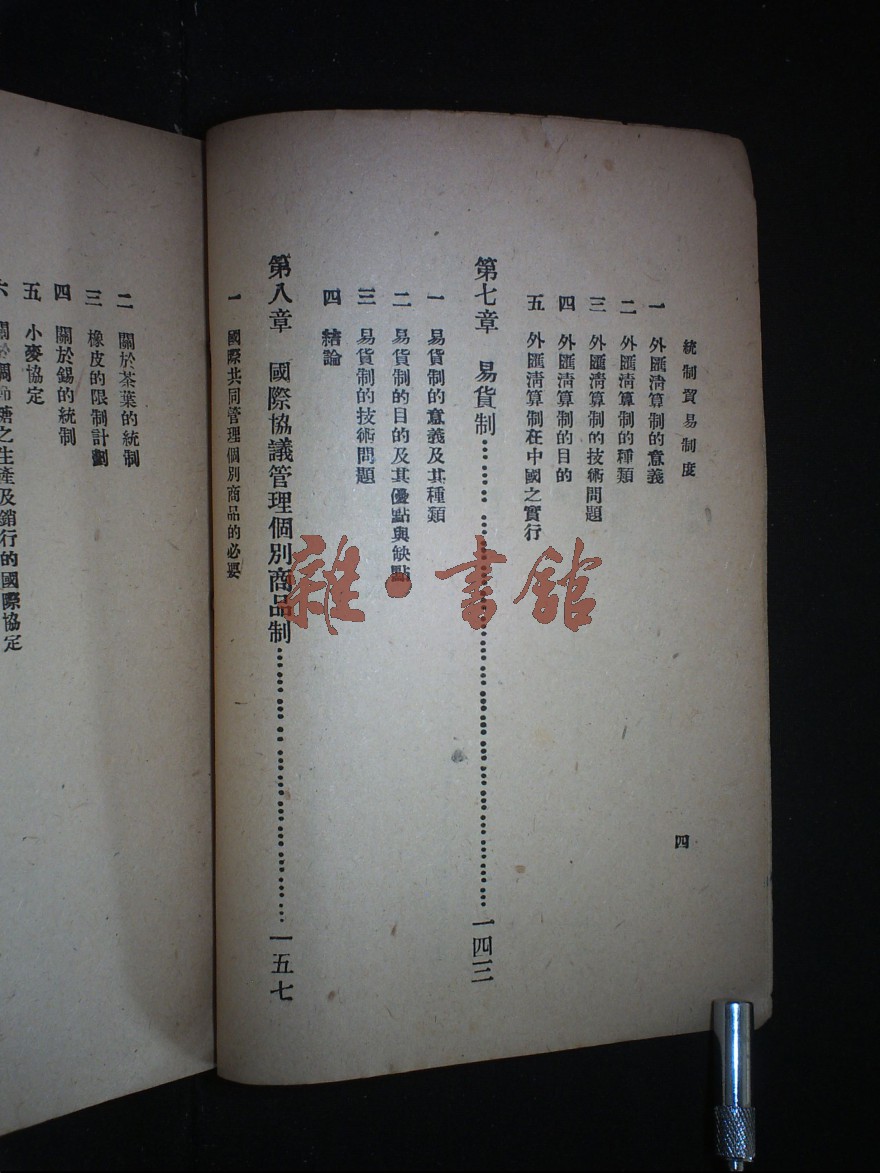 統制貿易制度
四
一 外匯清算制的意義
二 外匯清算制的種類
三 外匯清算制的技術問題
四 外匯清算制的目的
五 外匯清算制在中國之實行
第七章 易貨制……一四三
一 易貨制的意義及其種類
二 易貨制的目的及其優點與缺點
三 易貨制的技術問題
四 結論
第八章 國際協議管理個別商品制……一五七
一 國際共同管理個別商品的必要
二 關於茶葉的統制
三 橡皮的限制計劃
四 關於錫的統制
五 小麥協定
六 關於糖之生產及銷行的國際協定
雜·書館